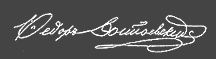 Ѳедоръ Достоевскій